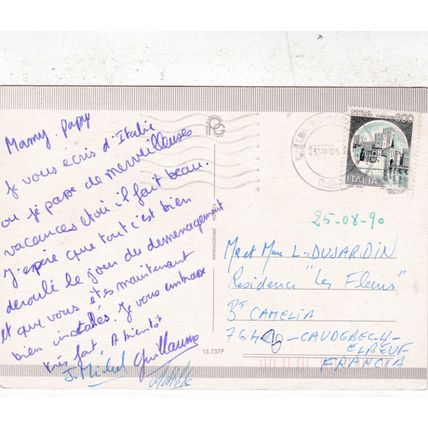 Mamy. Papy
Je vous écris d'Italie
ou je passe de merveilleuses
vacances et où il fait beau.
J'espère que tout c'est bien
déroulé le jour du demenagement
et que vous êtes maintenant
bien installés. Je vous embrasse
très fort. A bientôt
Guillaume
J. Michel
13.737F
600
ITALIA
25-08-90
Mr et Mme L. DUJARDIN
Residence "Les Fleurs"
Bt CAMELIA
CAUDEBEC-
ELBEUF
FRANCIA